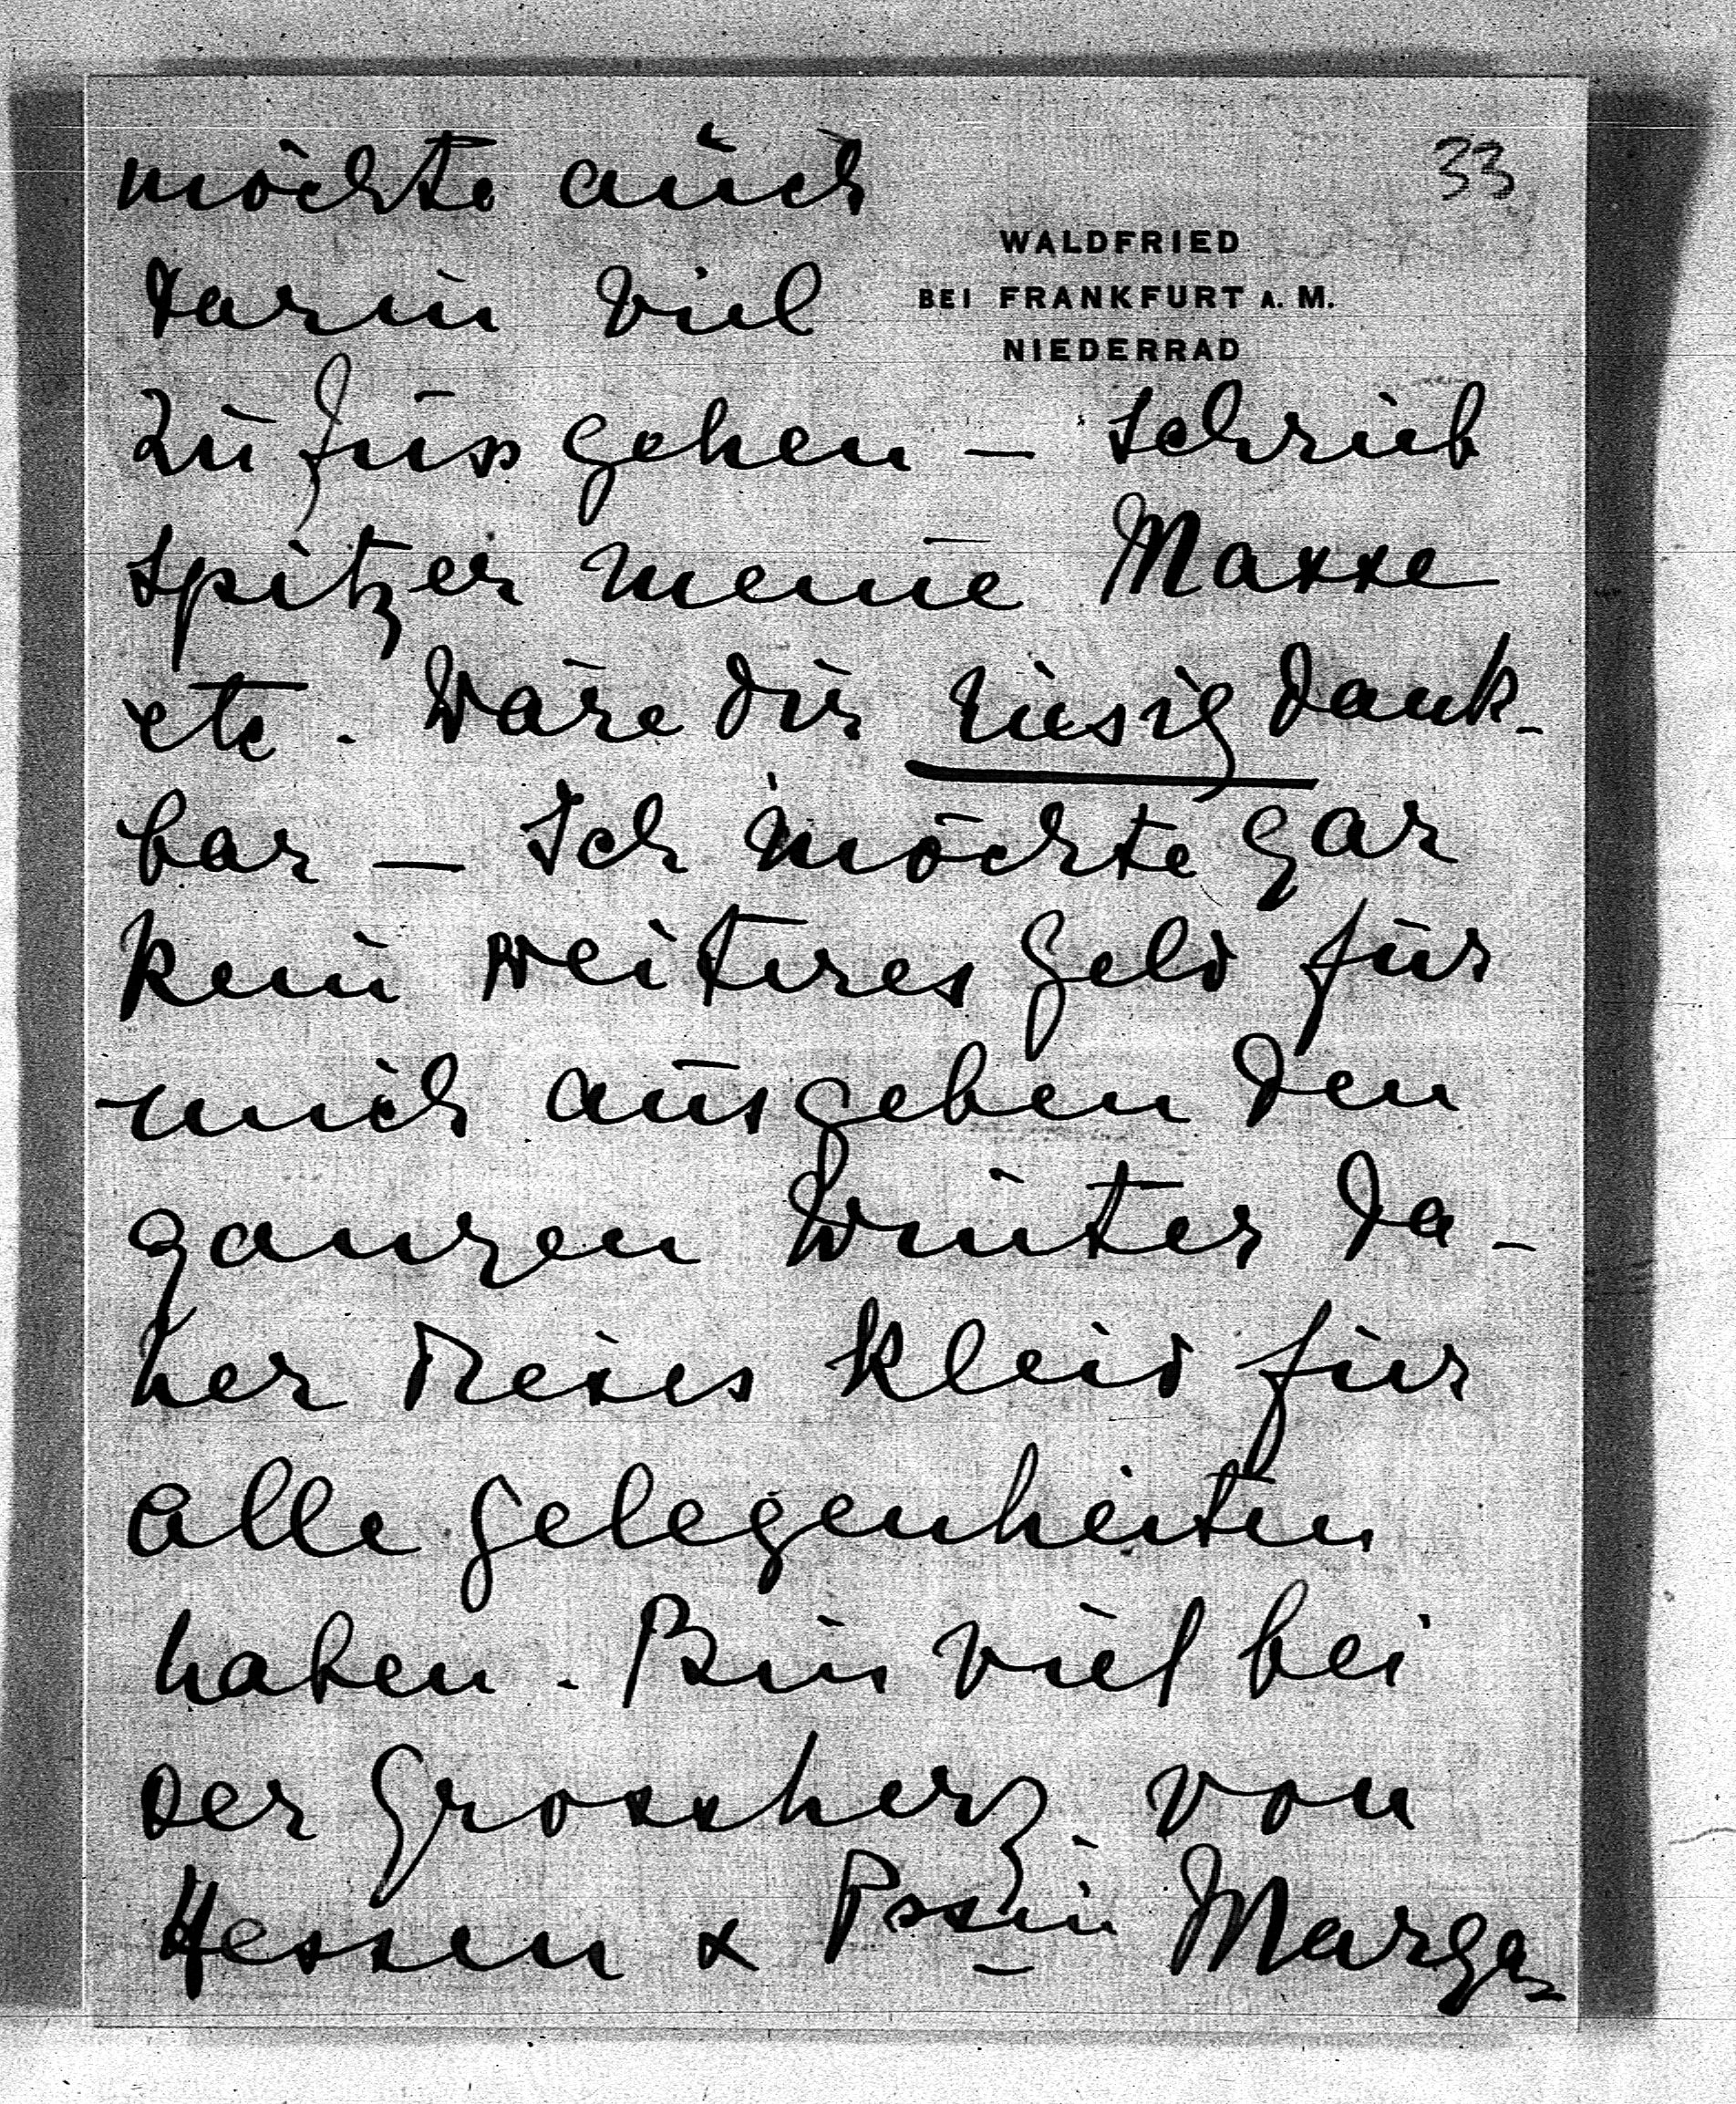 33
WALDFRIED
BEI FRANKFURT A. M.
NIEDERRAD
möchte auch
darin viel
zu fuss gehen – schrieb
Spitzer meine Masse
etc. Wäre dir riesig dank-
bar – Ich möchte gar
kein weiteres Geld für
mich ausgeben den
ganzen Winter da-
her dieses Kleid für
alle Gelegenheiten
haben. Bin viel bei
der Grossherz. von
Hessen & Prssin Marga-